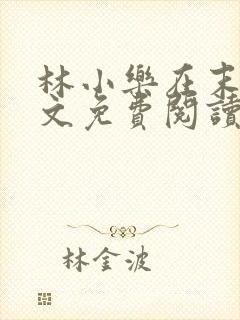 林小樂在末
文免費閱讀
林金波